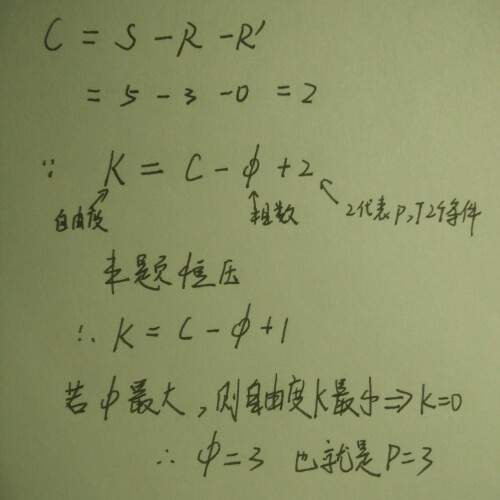 C = S - R - R'
= 5 - 3 - 0 = 2
∵ K = C - ϕ + 2
自由度 相数 2代表P,T2个条件
本题恒压
∴ K = C - ϕ + 1
若ϕ最大,则自由度K最小⇒K=0
∴ ϕ=3 也就是P=3